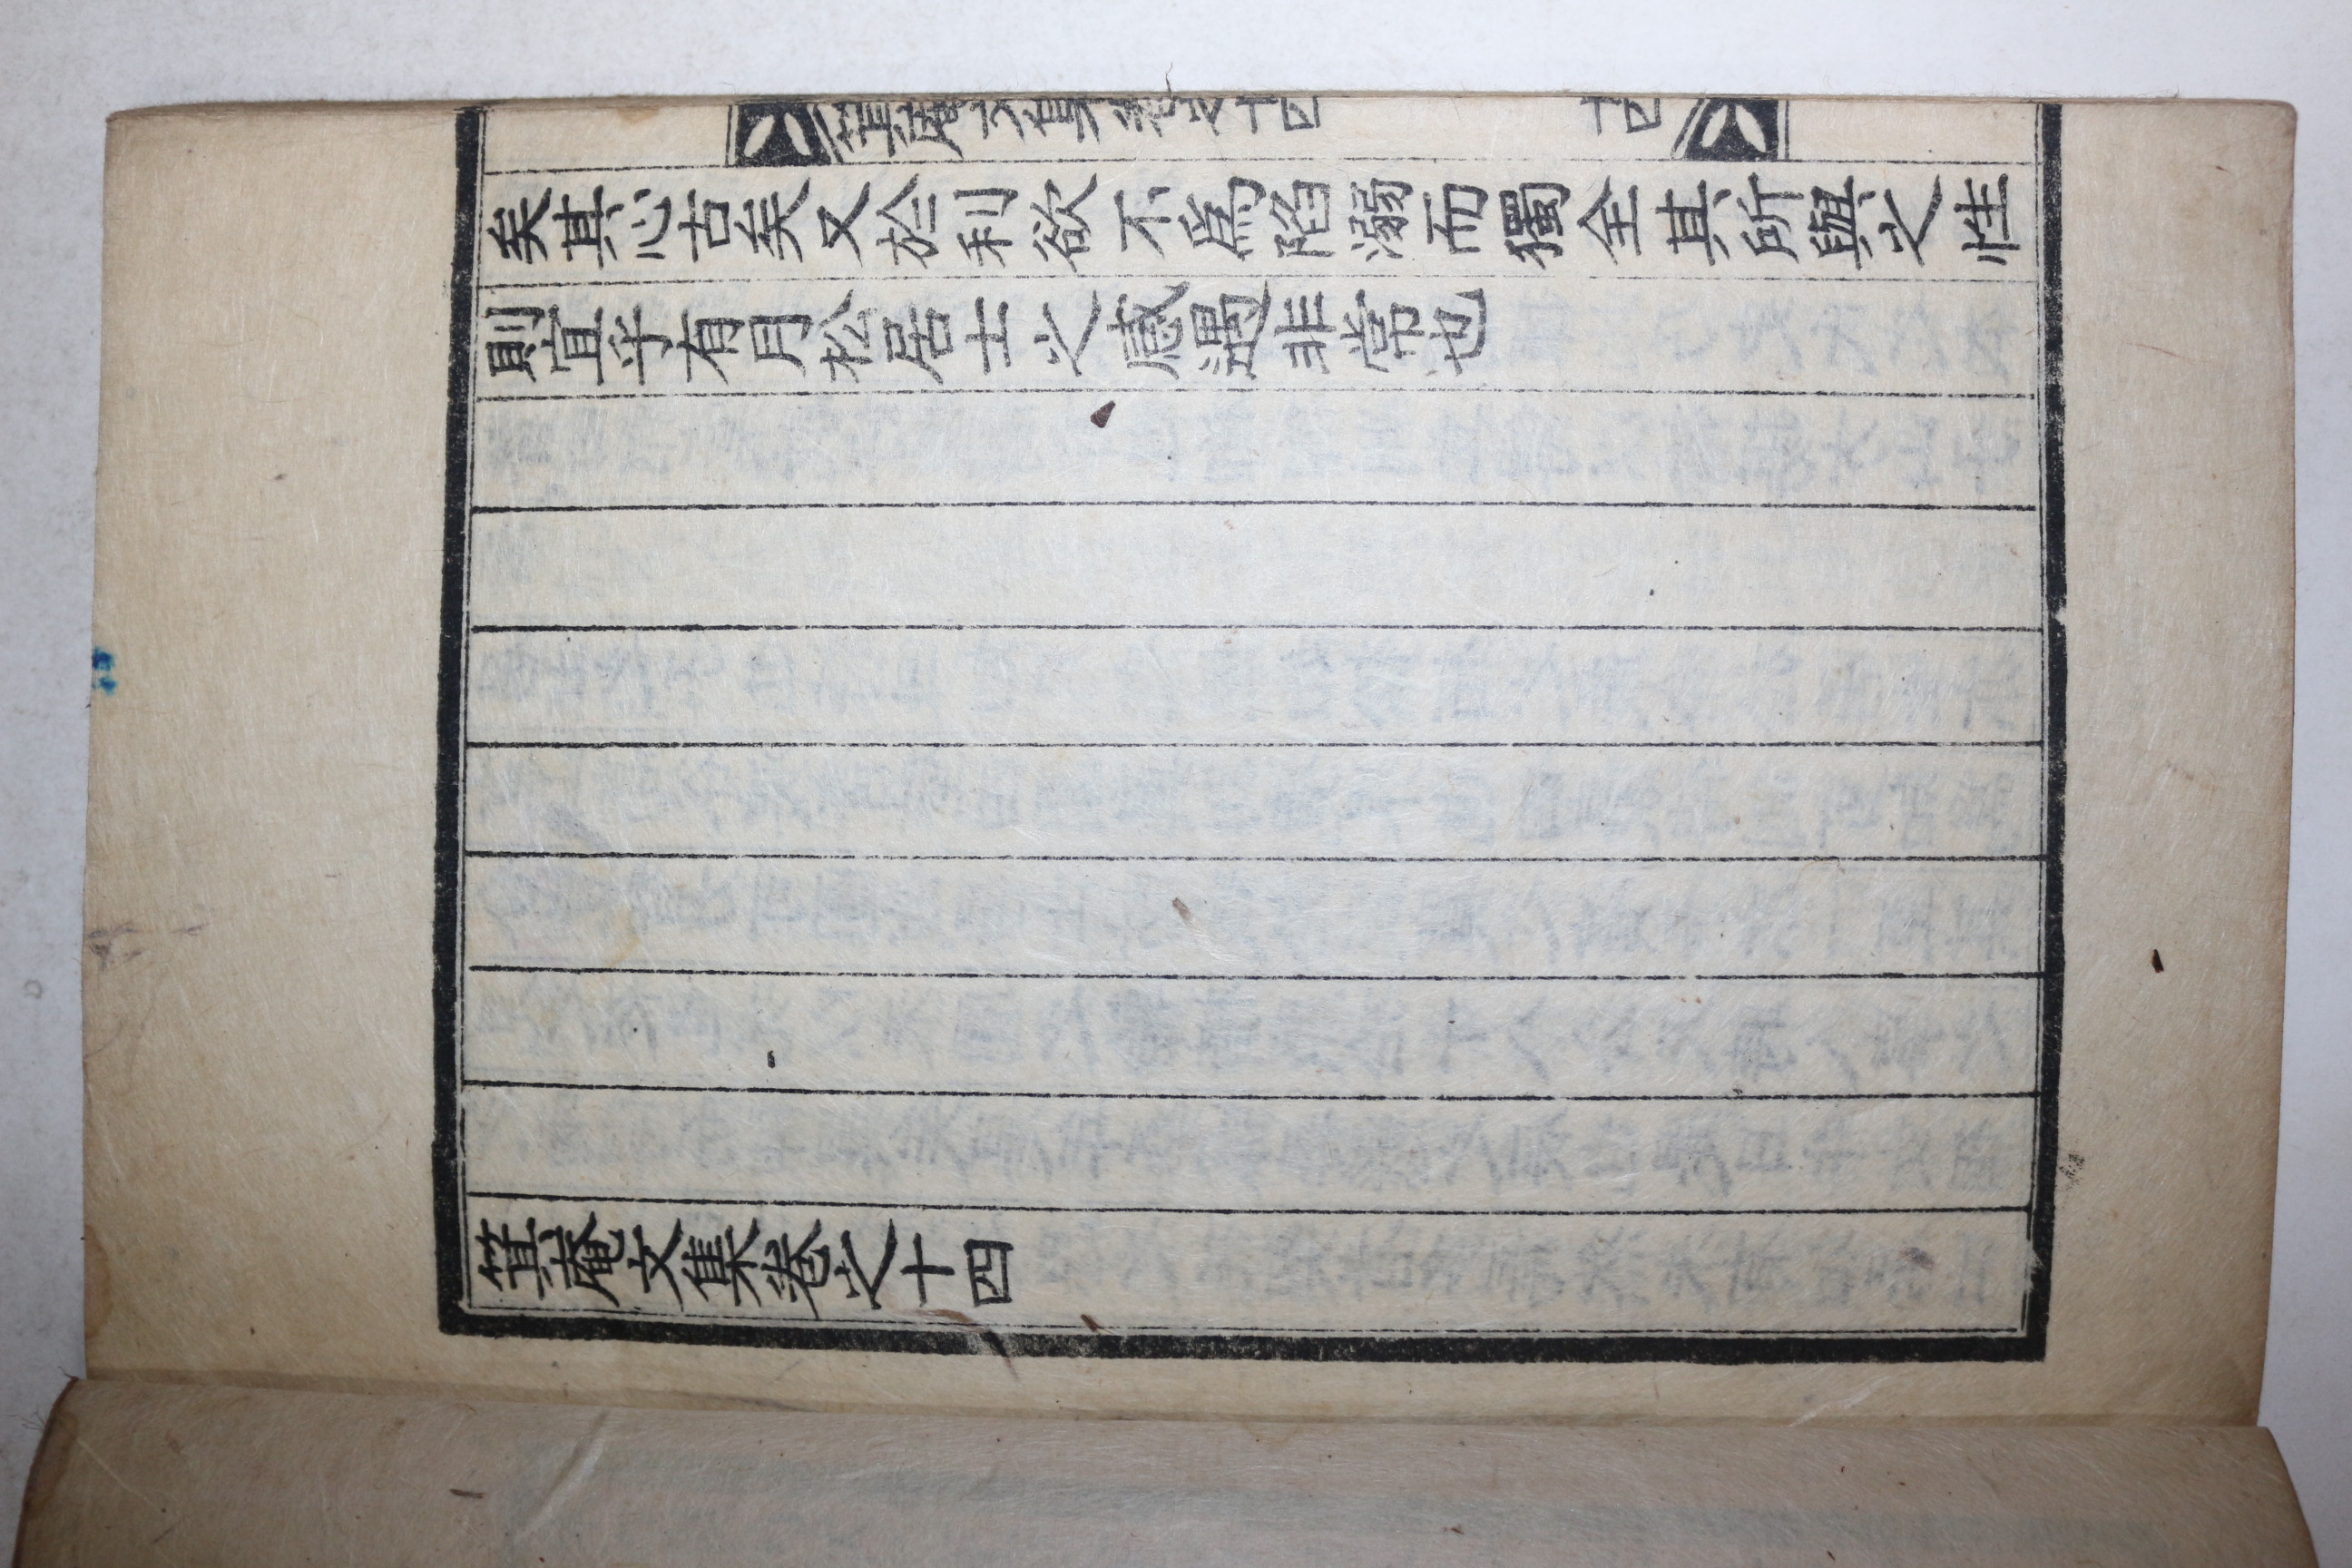 十四 十四
矣其心古矣又於利欲不爲陷溺而獨全其所與之性
則宜乎有月松居士之感遇非常也
庵文集卷之十四